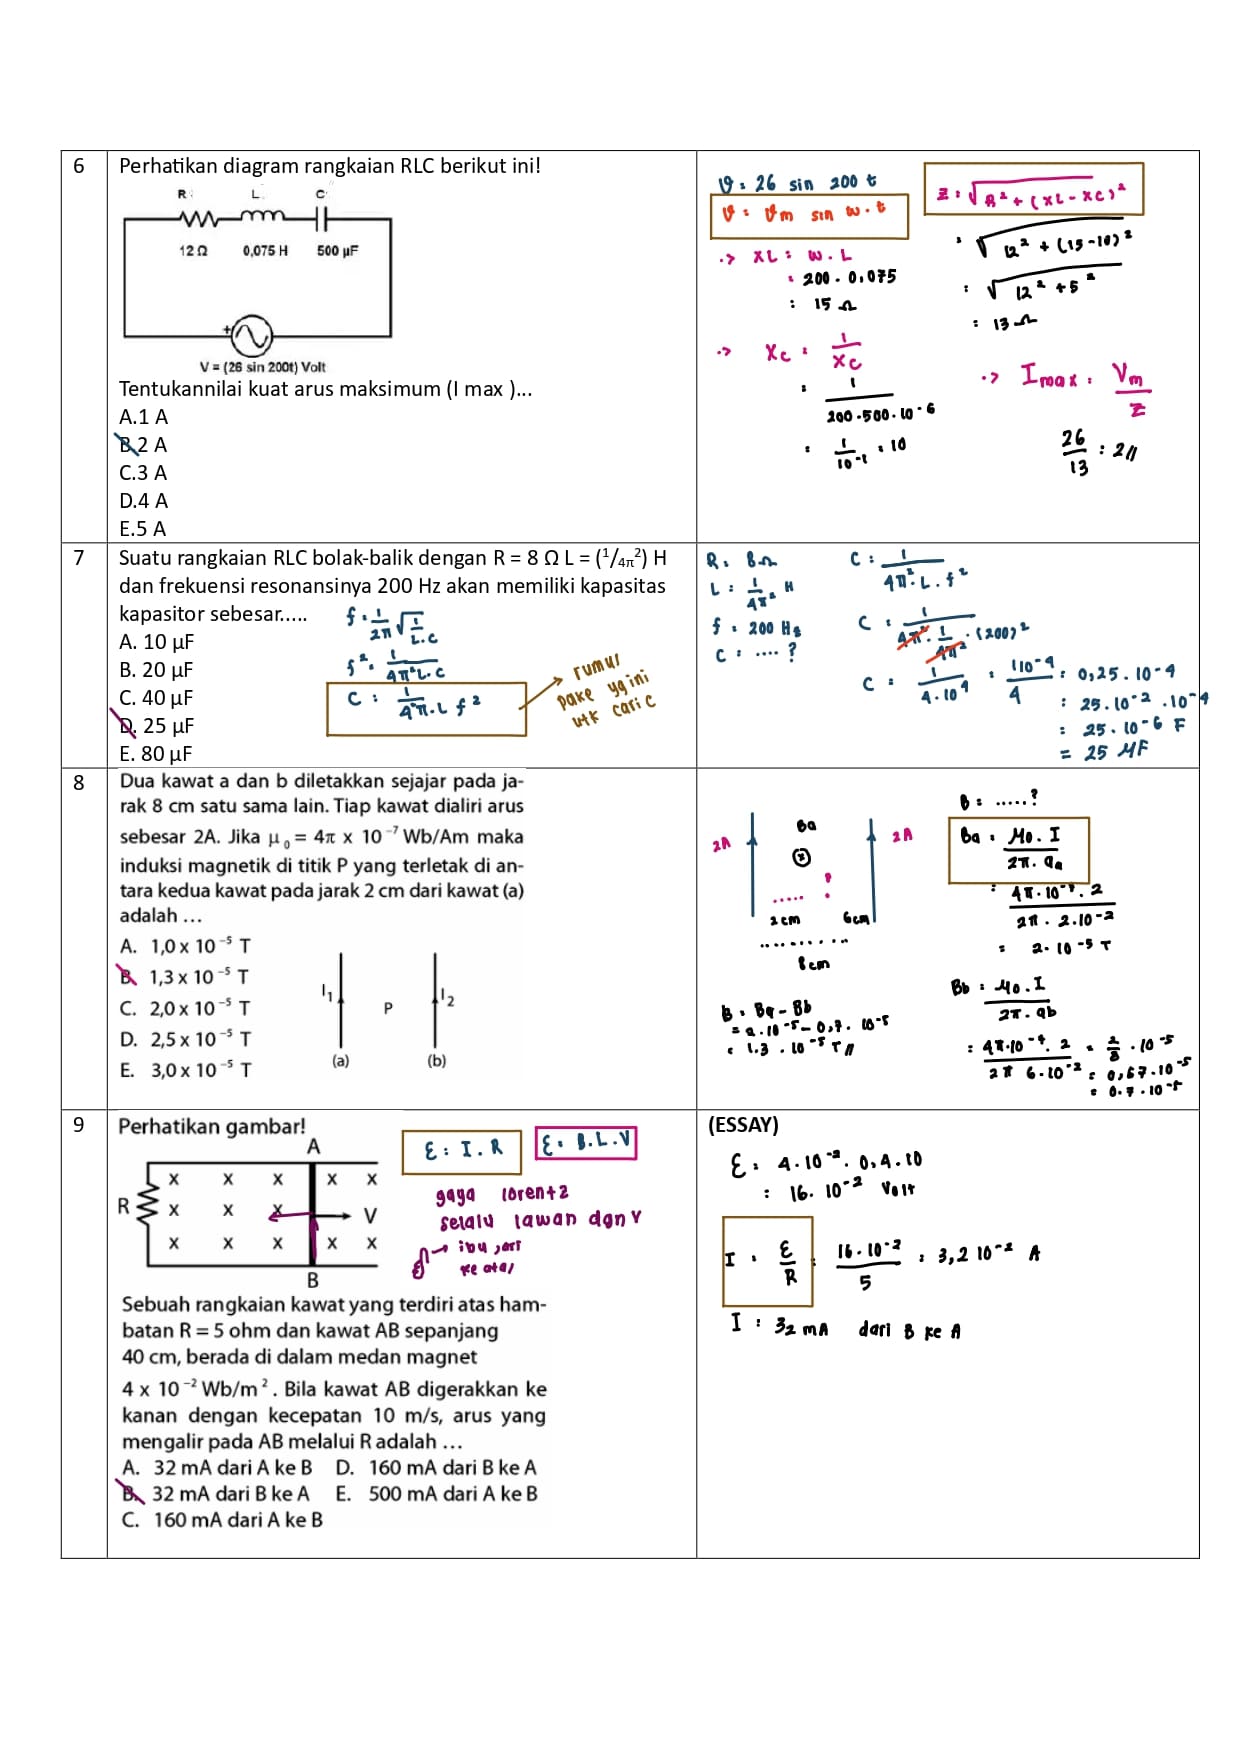 6
Perhatikan diagram rangkaian RLC berikut ini!
R L C
12 Ω 0,075 H 500 µF
+
V = (26 sin 200t) Volt
Tentukannilai kuat arus maksimum (I max )...
A.1 A
B.2 A
C.3 A
D.4 A
E.5 A
v = 26 sin 200 t
v = vm sin w . t
-> XL = w . L
= 200 . 0,075
= 15 Ω
-> Xc = 1/Xc
= 1/200 . 500 . 10⁻⁶
= 1/10⁻¹ = 10
Z = √R² + (XL - XC)²
= √12² + (15-10)²
= √12² + 5²
= 13 Ω
-> Imax = Vm/Z
26/13 = 2//
7
Suatu rangkaian RLC bolak-balik dengan R = 8 Ω L = (¹/₄π²) H
dan frekuensi resonansinya 200 Hz akan memiliki kapasitas
kapasitor sebesar.....
A. 10 µF
B. 20 µF
C. 40 µF
D. 25 µF
E. 80 µF
f = 1/2π √1/L.C
f² = 1/4π²L.C
C = 1/4²π.L f²
rumus
pake yg ini
utk cari C
R = 8 Ω
L = 1/4π² H
f = 200 Hz
C = .... ?
C = 1/4π².L.f²
C = 1/4π² . 1/4π² . (200)²
C = 1/4.10⁴ = 1 10⁻⁴/4 = 0,25 . 10⁻⁴
= 25 . 10⁻² . 10⁻⁴
= 25 . 10⁻⁶ F
= 25 µF
8
Dua kawat a dan b diletakkan sejajar pada ja-
rak 8 cm satu sama lain. Tiap kawat dialiri arus
sebesar 2A. Jika µ₀ = 4π x 10⁻⁷ Wb/Am maka
induksi magnetik di titik P yang terletak di an-
tara kedua kawat pada jarak 2 cm dari kawat (a)
adalah ...
A. 1,0 x 10⁻⁵ T
B. 1,3 x 10⁻⁵ T
C. 2,0 x 10⁻⁵ T
D. 2,5 x 10⁻⁵ T
E. 3,0 x 10⁻⁵ T
I₁ P I₂
(a) (b)
2A Ba 2A
x
..... ?
2cm 6cm
..........
8cm
B = Ba - Bb
= 2.10⁻⁵ - 0,7 . 10⁻⁵
= 1.3 . 10⁻⁵ T //
B = .....?
Ba = µo . I/2π . aa
= 4π . 10⁻⁷ . 2/2π . 2.10⁻²
= 2. 10⁻⁵ T
Bb = µo . I/2π . ab
= 4π.10⁻⁷. 2/2π 6.10⁻² = 2/3 . 10⁻⁵
= 0,67.10⁻⁵
= 0.7 . 10⁻⁵
9
Perhatikan gambar!
A
x x x x x
R x x x V
x x x x x
B
ε = I . R
ε = B.L.V
gaya lorentz
selalu lawan dgn V
ibu jari
ke atas
Sebuah rangkaian kawat yang terdiri atas ham-
batan R = 5 ohm dan kawat AB sepanjang
40 cm, berada di dalam medan magnet
4 x 10⁻² Wb/m². Bila kawat AB digerakkan ke
kanan dengan kecepatan 10 m/s, arus yang
mengalir pada AB melalui R adalah ...
A. 32 mA dari A ke B D. 160 mA dari B ke A
B. 32 mA dari B ke A E. 500 mA dari A ke B
C. 160 mA dari A ke B
(ESSAY)
ε = 4.10⁻² . 0,4 . 10
= 16. 10⁻² Volt
I = ε/R = 16.10⁻²/5 = 3,2 10⁻² A
I = 32 mA dari B ke A